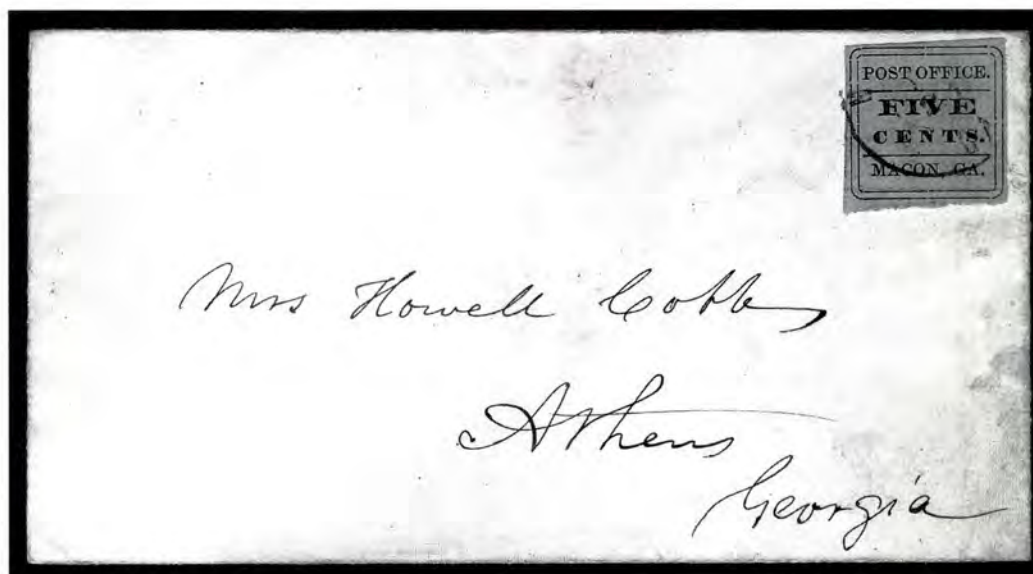 POST OFFICE.
FIVE
CENTS.
MACON, GA.
Mrs Howell Cobb
Athens
Georgia